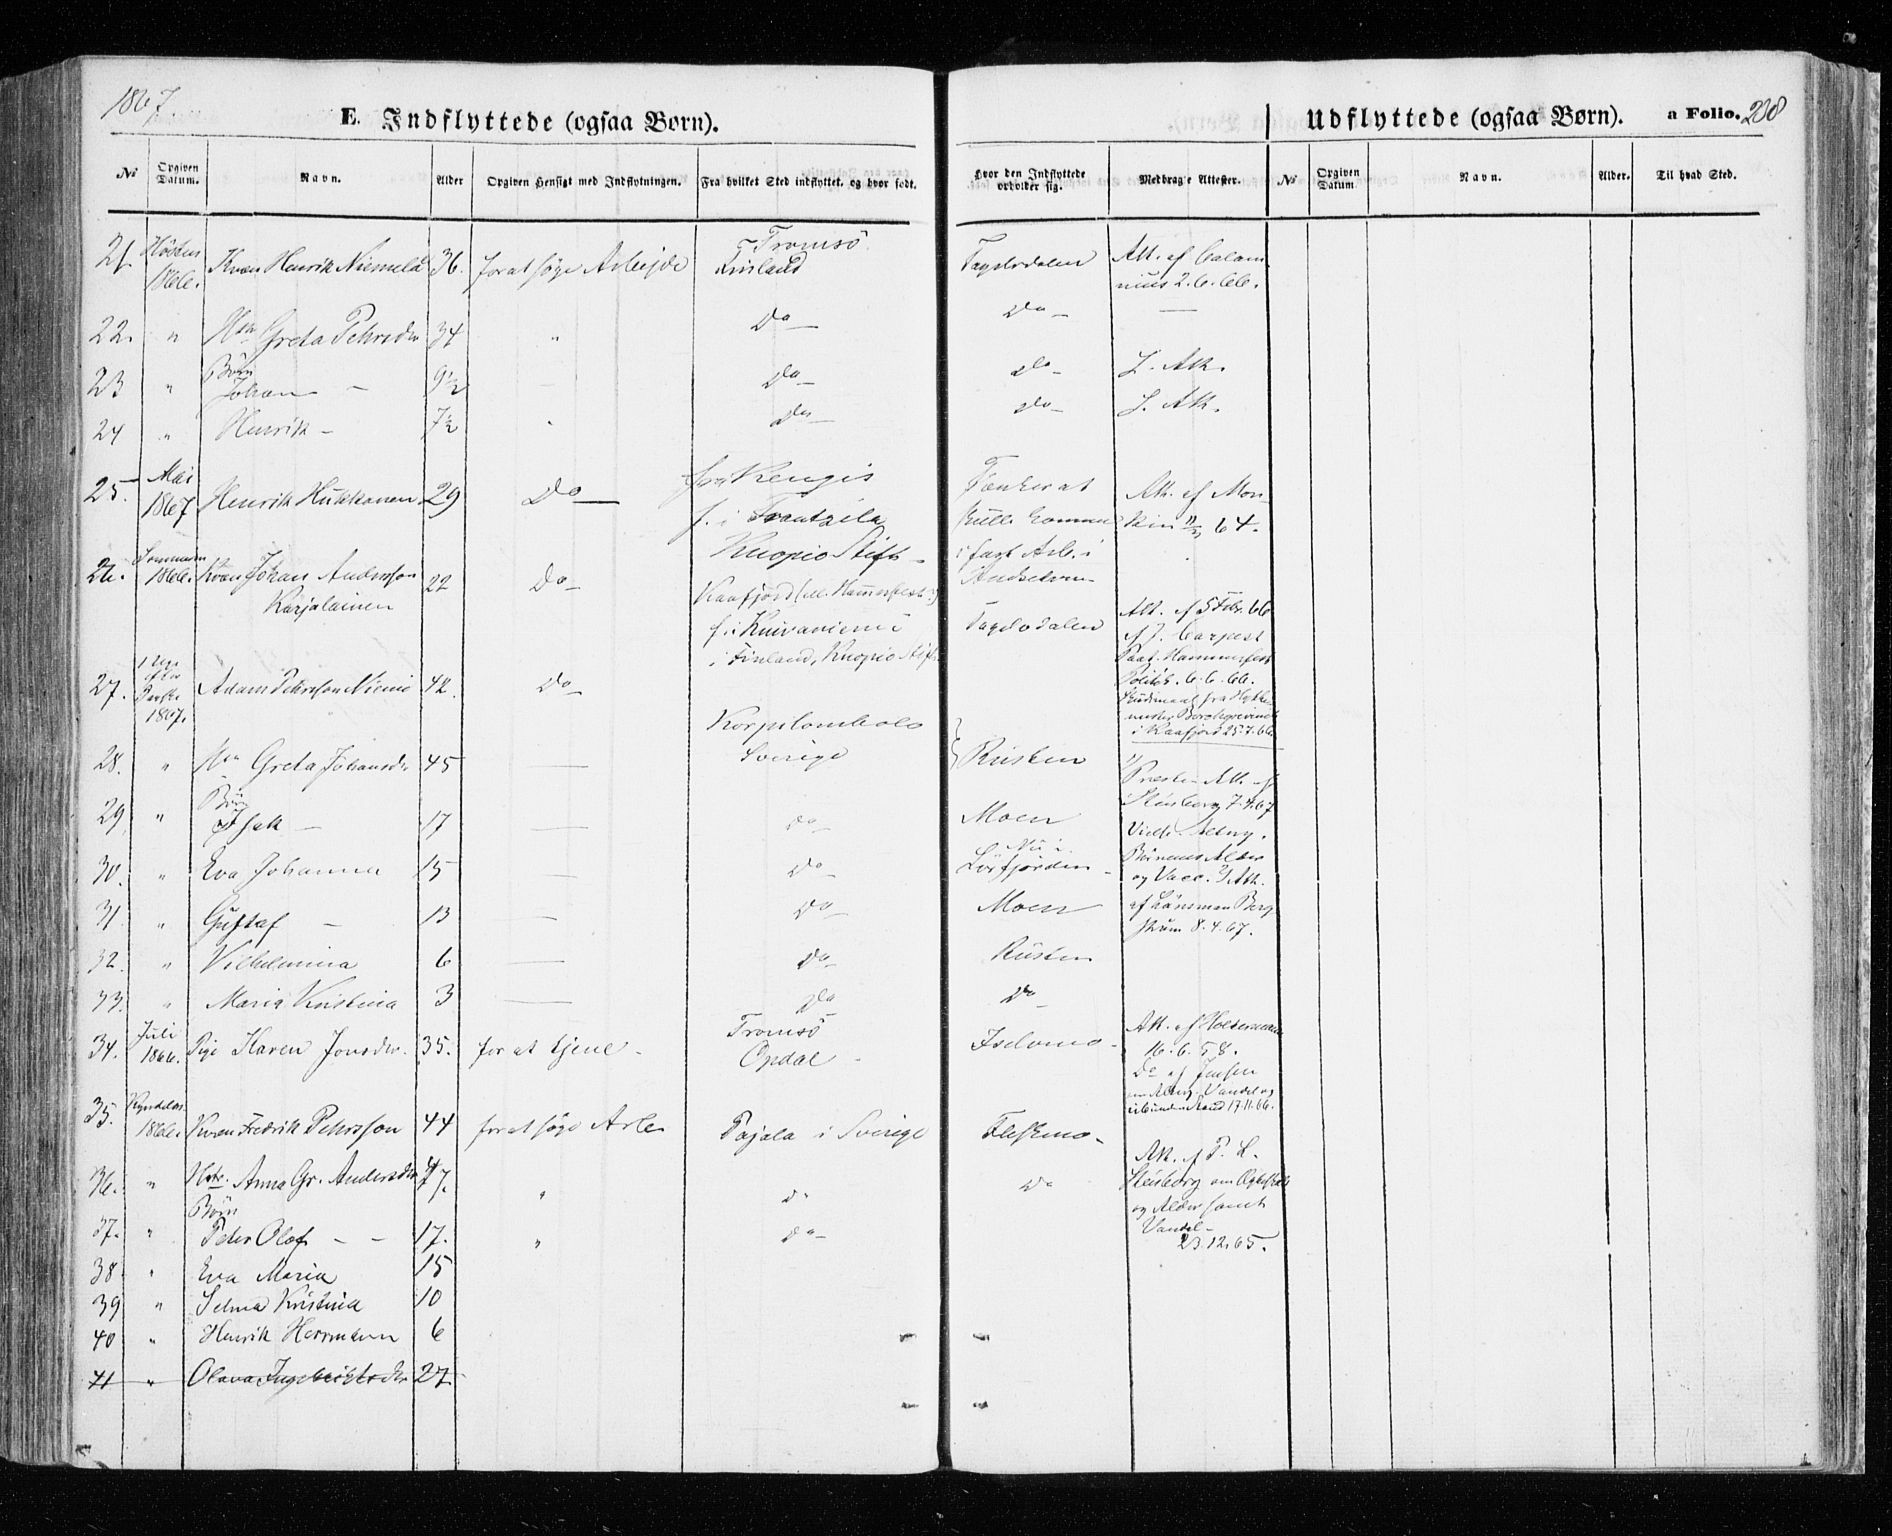 1867.
E. Indflyttede (ogsaa Børn).
Udflyttede (ogsaa Børn).
a Folio. 208
No
Opgiven Datum.
Navn.
Alder
Opgiven Hensigt med Indflytningen.
Fra hvilket Sted indflyttet, og hvor født.
Hvor den Indflyttede opholder sig.
Medbragte Attester.
No
Opgiven Datum
Navn.
Alder.
Til hvad Sted.
21 Høsten 1866. Kvæn Henrik Niemelä 36. for at søge Arbejde Tromsö Finland Tagelvdalen Att. af Calamnius 2.6.66.
22. " Greta Pehrsdr 34 " Do Do —
23 " Børn Johan — 9½ — Do do J. Att.
24 " Henrik — 7½ " Do do J. Att.
25. Mai 1867 Henrik Hukkanen 29 Do fra Kengis
f. i Frantzila
Kuopio Stift
Tænker at
i fast Arb. i
Att. af Mon
kin 64.
26. Sommeren 1866. Kvæn Johan Andersson Karjalainen 22 Do Kaafjord (ved Hammerfest)
f. i Kuivaniemi
i Finland, Kuopio Stift
Tagelvdalen
Att. af 5 Febr. 66
af J. Carpest
Hammerfest
Politik. 6.6.66.
Skudsmaal fra
i Kaafjord 25.7.66
27. Paaske 1867. Adam Pehrsson Niemi 42. Do
Korpilombolo
Sverige
28. " Hu Greta Johansdr 45 — Rusten Præste Att. af
Stenborg 7.4.67
29 " Børn Isak — 17 — do Moen
30. " Eva Johanna 15 — Do Nu i Löxfjorden Børnenes Alder
og Vacc. Att.
31. " Gustaf — 13 — Do Moen af Länsman Berg
ström 8.4.67.
32. " Vilhelmina 6 — Do Rusten
33. " Maria Kristina 3 — Do Do
34. Juli 1866. Pige Karen Jonsdr. 35. for at tjene Tromsö Opdal Iselvmo Att. af Holtermann
16.6.58.
Do af Jensen
17.11.66.
35. Kyndelm. 1866. Kvæn Fredrik Pehrsson 44 for at søge Arb. Pajala i Sverige Fleskmo
36. " Hstr. Anna Gr. Andersdr 47. " do Do Att. af P. L.
Stenborg om Ægteskab
og Alder samt
Vandel
23.12.65.
37. " Børn Peter Olof — — 17. " do
38 " Eva Maria 15
39 " Selma Kristina 10
40 " Henrik Herrmann 6
41 " Olava Ingebrigtsdr 27